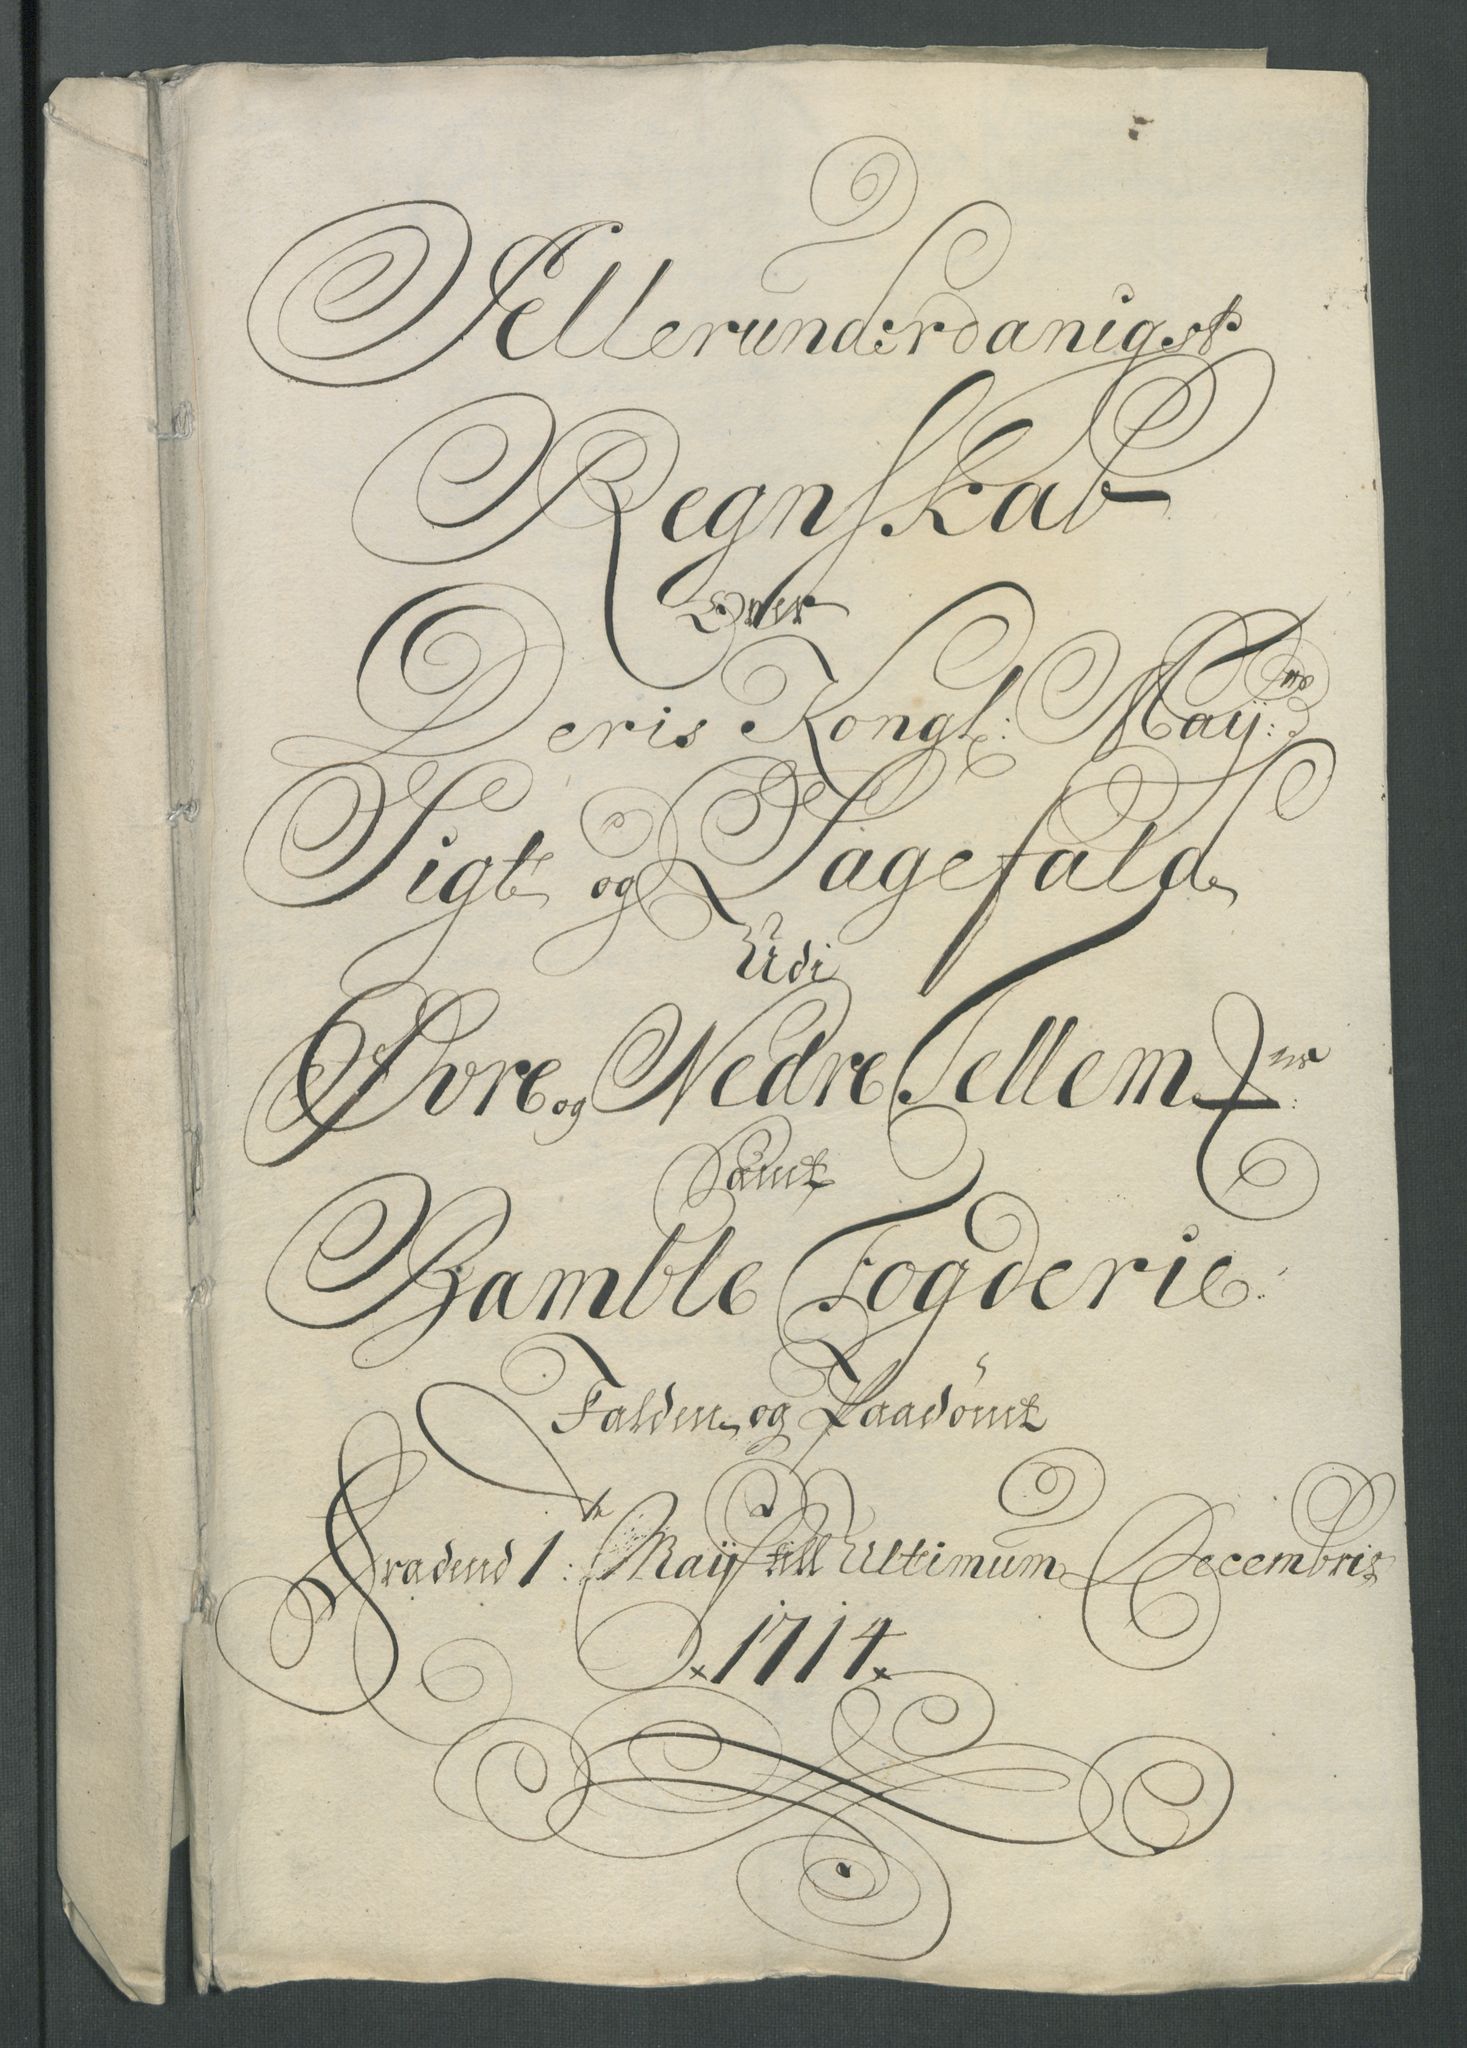 Allerunderdanigst
Regnskab
Over
Deris Kongl: Maÿ:ts
Sigt og Sagefald
Udi
Øvre og Nedre Tellem:
Samt
Bamble Fogderie:
Falden og Paadömt
Fradend 1: Maÿ till Ultimum Decembris
1714